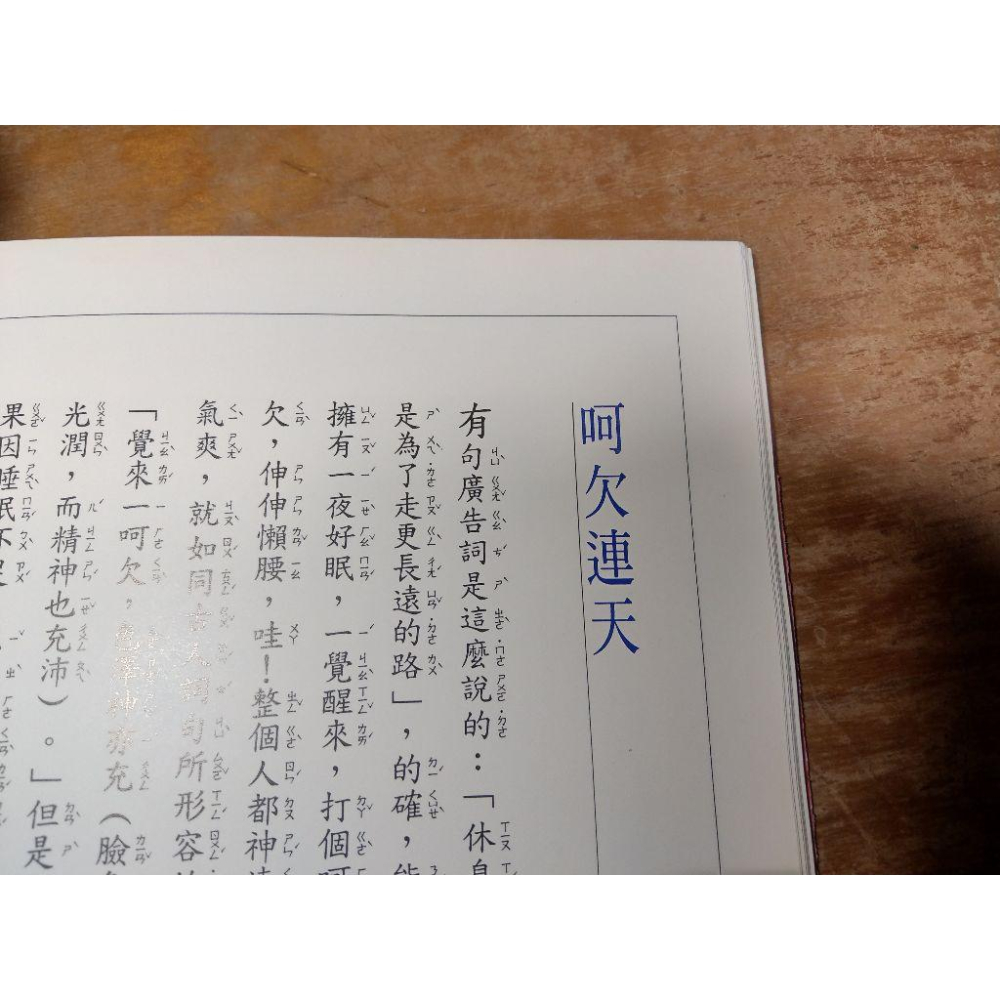 呵欠連天
有句廣告詞是這麼說的：「休息
是為了走更長遠的路」，的確，能
擁有一夜好眠，一覺醒來，打個呵
欠，伸伸懶腰，哇！整個人都神
氣爽，就如同古人詞句所形容
「覺來一呵欠，色澤神亦充（臉
光潤，而精神也充沛）。」但是
果因睡眠不足